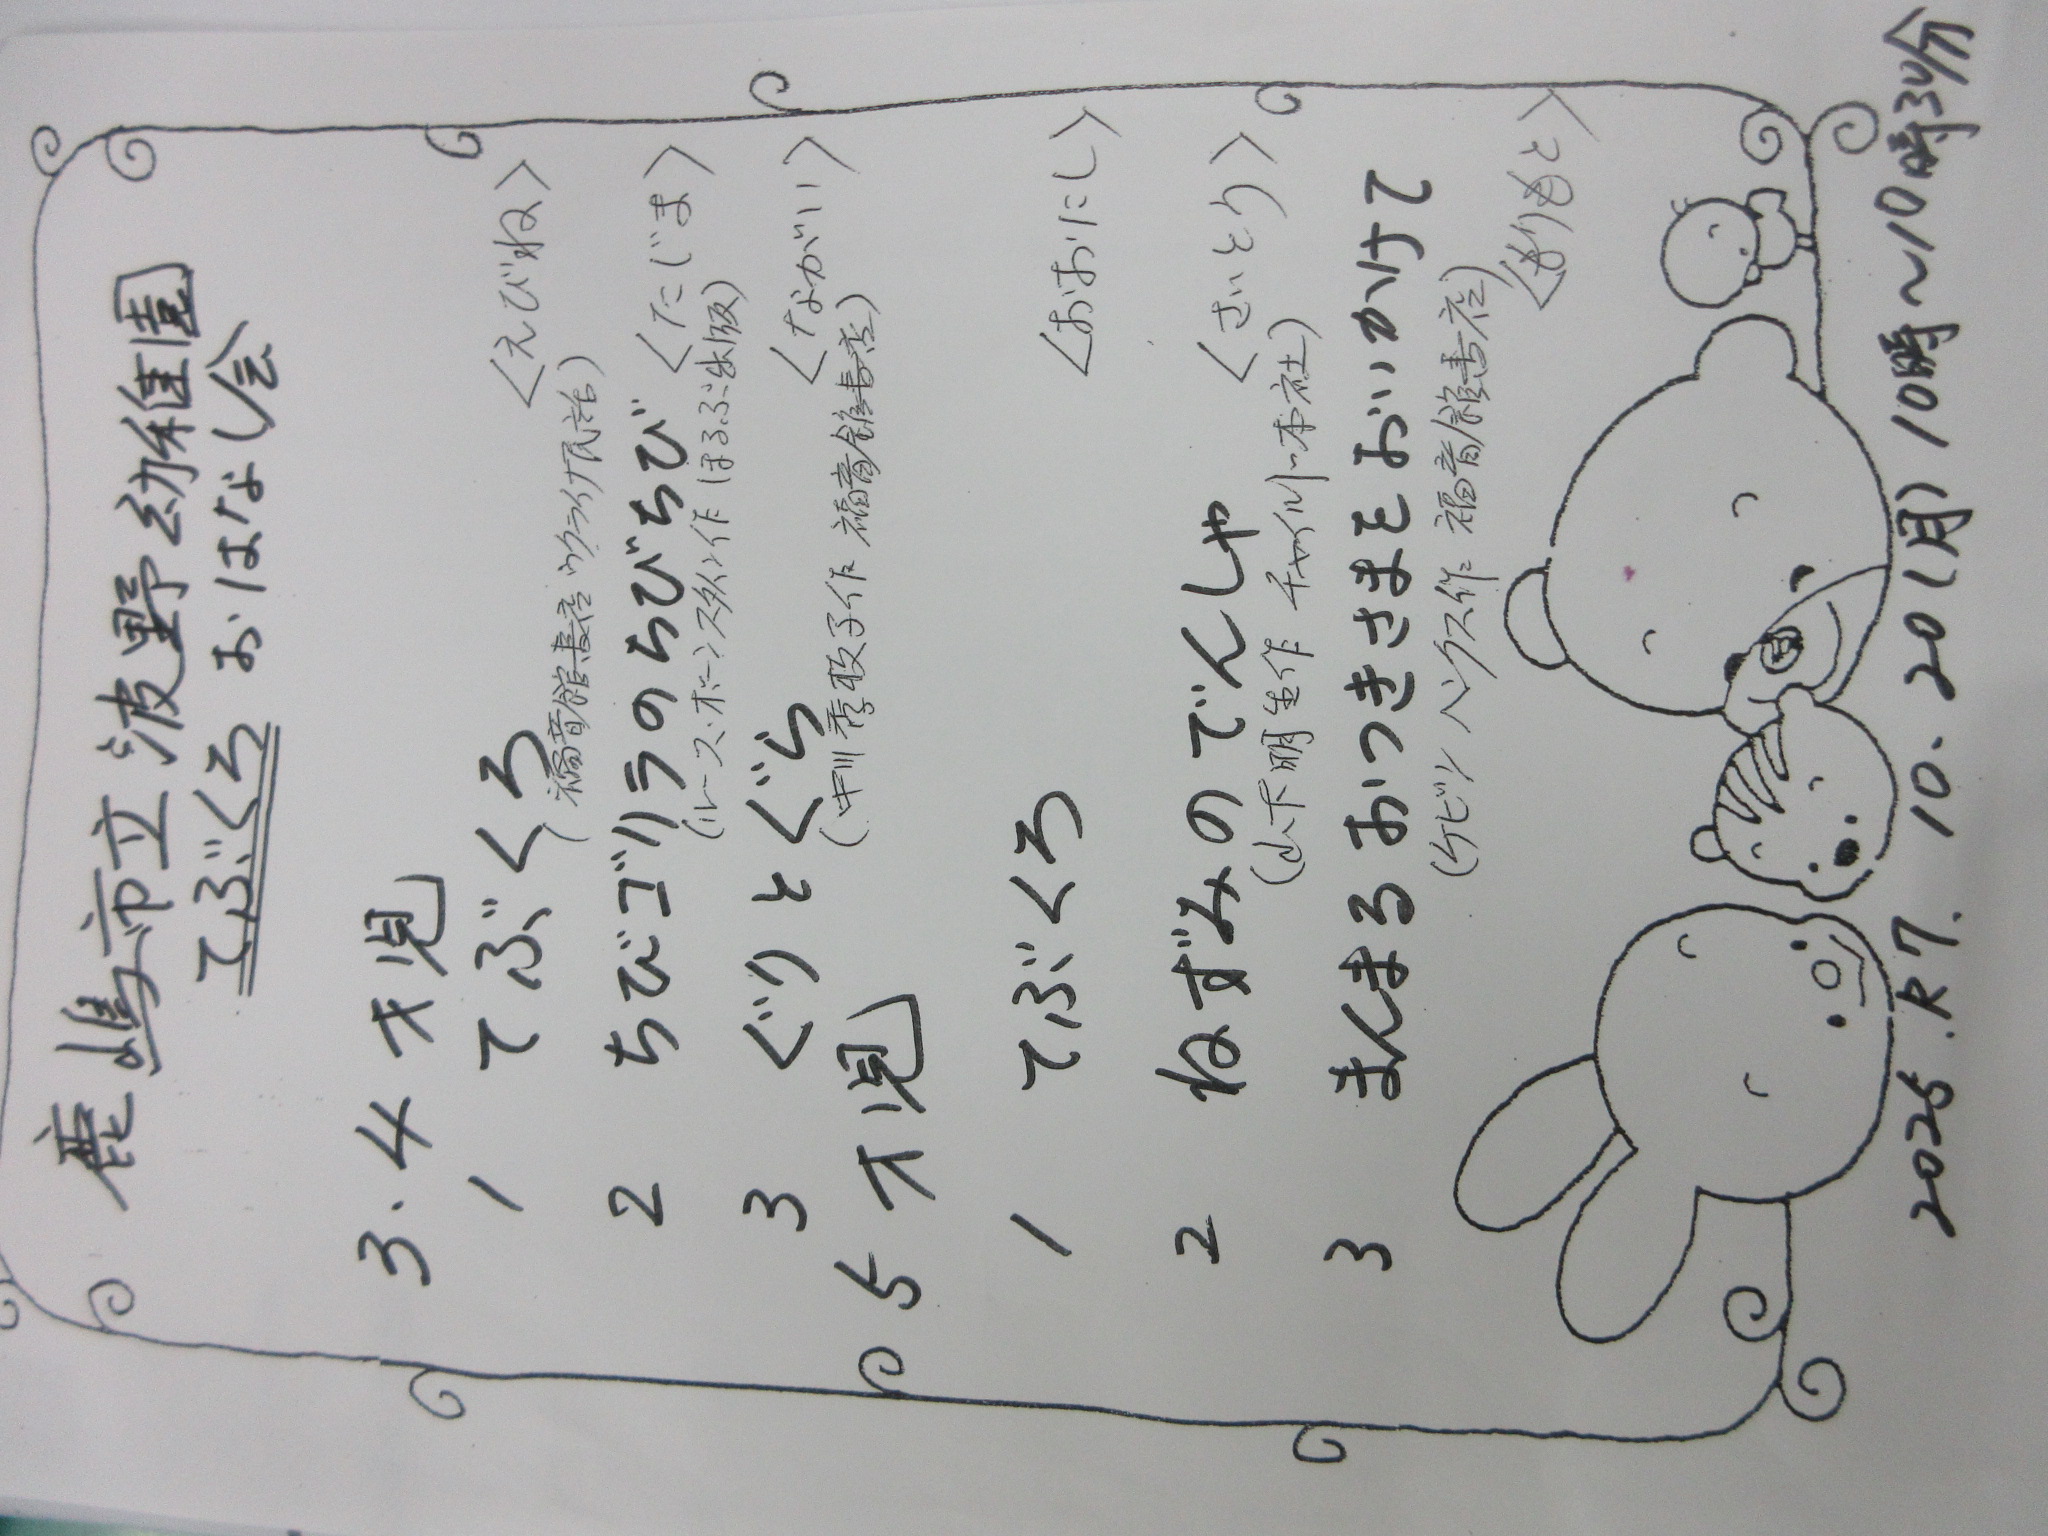 鹿嶋市立波野幼稚園
てぶくろ おはなし会
3.4才児
1 てぶくろ <えびね>
(福音館書店 ウクライナ民話)
2 ちびゴリラのちびちび <たじま>
(ルース・ボーンスタイン作 ほるぷ出版)
3 ぐりとぐら <ながい>
(中川李枝子作 福音館書店)
5才児
1 てぶくろ <おおにし>
2 ねずみのでんしゃ <さいとう>
(山下明生作 チャイルド本社)
3 まんまるおつきさまをおいかけて
(ケビンヘンクス作 福音館書店) <もりもと>
2025.R7. 10. 20(月) 10時~10時30分